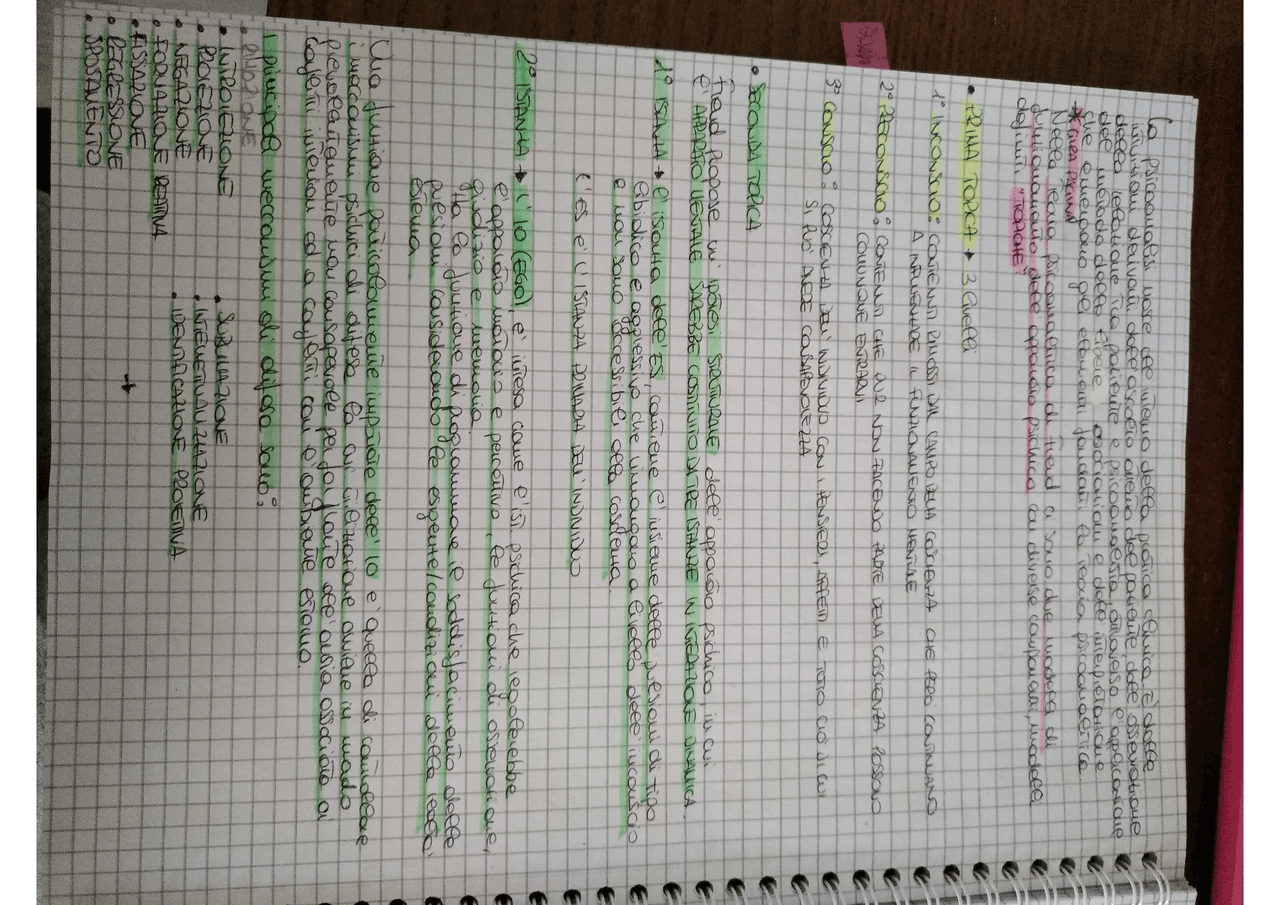 La psicoanalisi nasce all'interno della pratica clinica e dalle
intuizioni derivanti dall'ascolto attento del paziente, dall'osservazione
della relazione tra paziente e psicoanalista, attraverso l'applicazione
del metodo delle libere associazioni e dell'interpretazione
che emergono gli elementi fondanti la teoria psicoanalitica.
*GIRA PAGINA
Nella teoria psicoanalitica di Freud ci sono due modelli di
funzionamento dell'apparato psichico con diverse componenti, modelli
definiti "TOPICHE"
• PRIMA TOPICA → 3 livelli
1° INCONSCIO: CONTENUTI RIMOSSI DAL CAMPO DELLA COSCIENZA CHE PERÒ CONTINUANO
A INFLUENZARE IL FUNZIONAMENTO MENTALE
2° PRECONSCIO: CONTENUTI CHE PUR NON FACENDO PARTE DELLA COSCIENZA POSSONO
COMUNQUE ENTRARVI
3° CONSCIO: COSCIENZA DELL'INDIVIDUO CON I PENSIERI, AFFETTI E TUTTO CIÒ DI CUI
SI PUÒ AVERE CONSAPEVOLEZZA
ESAMI
• SECONDA TOPICA
Freud propose un'ipotesi STRUTTURALE dell'apparato psichico, in cui
L'APPARATO MENTALE SAREBBE COSTITUITO DA TRE ISTANZE IN INTERAZIONE DINAMICA.
1° ISTANZA → è l'istanza dell'ES, contiene l'insieme delle pulsioni di tipo
libidico e aggressivo che rimangono a livello dell'inconscio
e non sono accessibili alla coscienza.
L'ES È L'ISTANZA PRIMARIA DELL'INDIVIDUO
2° ISTANZA → L'IO (EGO), è intesa come l'ist. psichica che regolerebbe
l'apparato motorio e percettivo, le funzioni di osservazione,
giudizio e memoria.
Ha la funzione di programmare il soddisfacimento delle
pulsioni considerando le esigenze/condizioni della realtà
esterna
Una funzione particolarmente importante dell'Io è quella di controllare
i meccanismi psichici di difesa la cui attivazione avviene in modo
prevalentemente non consapevole per far fronte all'ansia associata ai
conflitti interiori ed a conflitti con l'ambiente esterno.
I principali meccanismi di difesa sono:
• RIMOZIONE
• INTROIEZIONE
• PROIEZIONE
• NEGAZIONE
• FORMAZIONE REATTIVA
• FISSAZIONE
• REGRESSIONE
• SPOSTAMENTO
• SUBLIMAZIONE
• INTELLETTUALIZZAZIONE
• IDENTIFICAZIONE PROIETTIVA
→